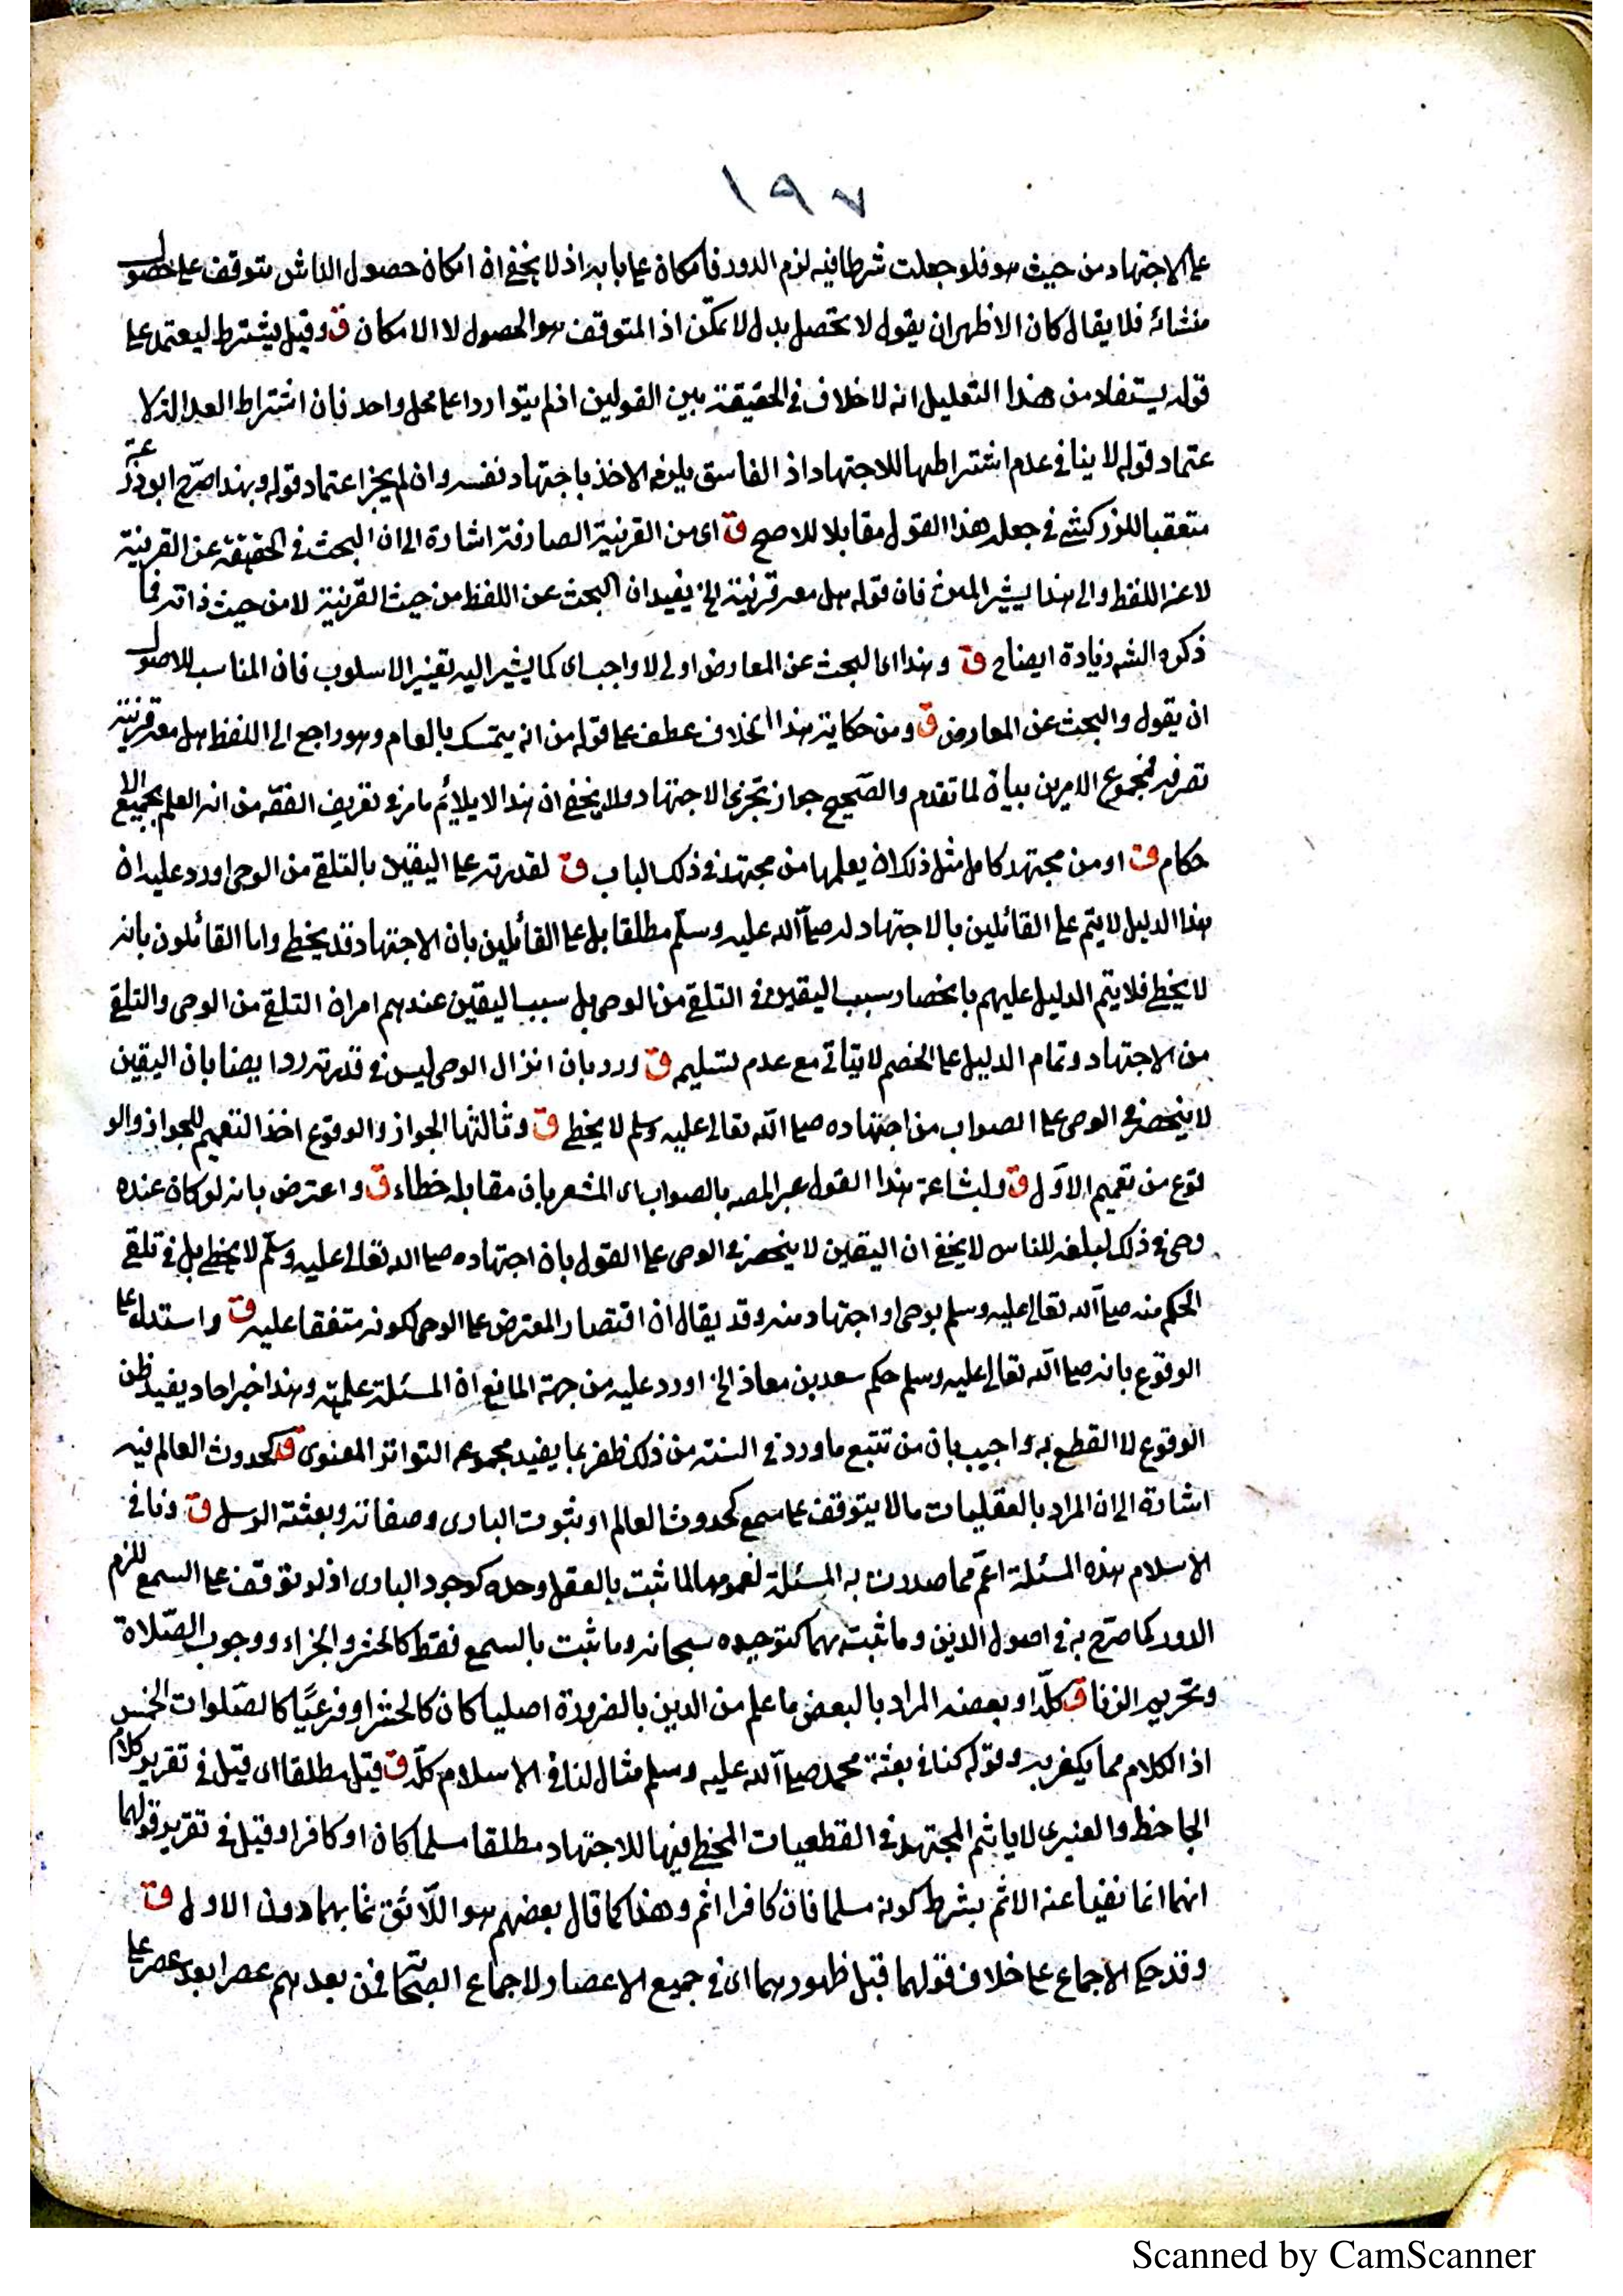 ١٩٧
على الاجتهاد من حيث هو فلو جعلت شرطا فيه لزم الدور فامكان على بابه اذ لا يخفى ان امكان حصول الناشى يتوقف على حصول
منشائه فلا يقال كان الاظهر ان يقول لا تحصل بدل لا تمكن اذ المتوقف هو الحصول لا الامكان ق وقيل يشترط ليعتمد على
قوله يستفاد من هذا التعليل انه لا خلاف فى الحقيقة بين القولين اذ لم يتواردا على محل واحد فان اشتراط العدالة لا
عتماد قوله لا ينافى عدم اشتراطها للاجتهاد اذ الفاسق يلزمه الاخذ باجتهاد نفسه وان لم يجز اعتماد قوله وبهذا صرّح ابو زرعة
متعقبا للزركشى فى جعله هذا القول مقابلا للاصح ق اى من القرينة الصارفة اشارة الى ان البحث فى الحقيقة عن القرينة
لا عن اللفظ والى هذا يشير المتن فان قوله هل معه قرينة الخ يفيد ان البحث عن اللفظ من حيث القرينة لا من حيث ذاته فما
ذكره الشه زيادة ايضاح ق وهذا اى البحث عن المعارض اولى لا واجب اى كما يشير اليه تغيير الاسلوب فان المناسب للاصول
ان يقول والبحث عن المعارض ق ومن حكاية هذا الخلاف عطف على قوله من انه يتمسك بالعام وهو راجع الى اللفظ هل معه قرينة
تصرفه فمجموع الامرين بيان لما تقدم والصّحيح جواز تجزى الاجتهاد ولا يخفى ان هذا لا يلايم ما مر فى تعريف الفقه من انه العلم بجميع الا
حكام ق او من مجتهد كامل مثل ذلك ان يعلمها من مجتهد فى ذلك الباب ق لقدرته على اليقين بالتلقى من الوحى اورد عليه ان
هذا الدليل لا يتم على القائلين بالاجتهاد له صلى الله عليه وسلّم مطلقا بل على القائلين بان الاجتهاد قد يخطى واما القائلون بانه
لا يخطى فلا يتم الدليل عليهم بانحصار سبب اليقين فى التلقى من الوحى بل سبب اليقين عندهم امران التلقى من الوحى والتلقى
من الاجتهاد وتمام الدليل على الخصم لا يتأتى مع عدم تسليم ق ورد بان انزال الوحى ليس فى قدرته رد ايضا بان اليقين
لا ينحصر فى الوحى على الصواب من اجتهاده صلى الله تعالى عليه وسلم لا يخطى ق وثالثها الجواز والوقوع اخذ التعميم للجواز والو
قوع من تعميم الاوّل ق ولبشاعة هذا القول عبر المصه بالصواب اى المشعر بان مقابله خطاء ق واعترض بانه لو كان عنده
وحى فى ذلك لبلغه للناس لا يخفى ان اليقين لا ينحصر فى الوحى على القول بان اجتهاده صلى الله تعالى عليه وسلّم لا يخطى بل فى تلقى
الحكم منه صلى الله تعالى عليه وسلم بوحى او اجتهاد منه وقد يقال ان اقتصار المعترض على الوحى لكونه متفقا عليه ق واستدل على
الوقوع بانه صلى الله تعالى عليه وسلم حكم سعد بن معاذ الخ اورد عليه من جهة المانع ان المسئلة علمية وهذا خبر احاد يفيد ظن
الوقوع لا القطع به واجيب بان من تتبع ما ورد فى السنة من ذلك ظفر بما يفيد مجموعه التواتر المعنوى ق كحدوث العالم فيه
اشارة الى ان المراد بالعقليات ما لا يتوقف على سمع كحدوث العالم او ثبوت البارى وصفاته وبعثة الرسل ق ونافى
الاسلام هذه المسئلة اعمّ مما صدرت به المسئلة لعمومها لما ثبت بالعقل وحده كوجود البارى اذ لو توقف على السمع للزم
الدور كما صرّح به فى اصول الدين وما ثبت بهما كتوحيده سبحانه وما ثبت بالسمع فقط كالحشر والجزاء ووجوب الصّلاة
وتحريم الزنا ق كلّه او بعضه المراد بالبعض ما علم من الدين بالضرورة اصليا كان كالحشر او فرعيًا كالصّلوات الخمس
اذ الكلام مما يكفر به وقوله كنافى بعثة محمد صلى الله عليه وسلم مثال لنافى الاسلام كلّه ق قيل مطلقا اى قيل فى تقرير كلام
الجاحظ والعنبرى لا يأثم المجتهد فى القطعيات المخطى فيها للاجتهاد مطلقا مسلما كان او كافرا وقيل فى تقرير قولهما
انهما انما نفيا عنه الاثم بشرط كونه مسلما فان كافرا اثم وهذا كما قال بعضهم هو اللّائق بهما دون الاول ق
وقد حكى الاجماع على خلاف قولهما قبل ظهورهما اى فى جميع الاعصار لاجماع الصحابة فمن بعدهم عصرا بعد عصر على
Scanned by CamScanner